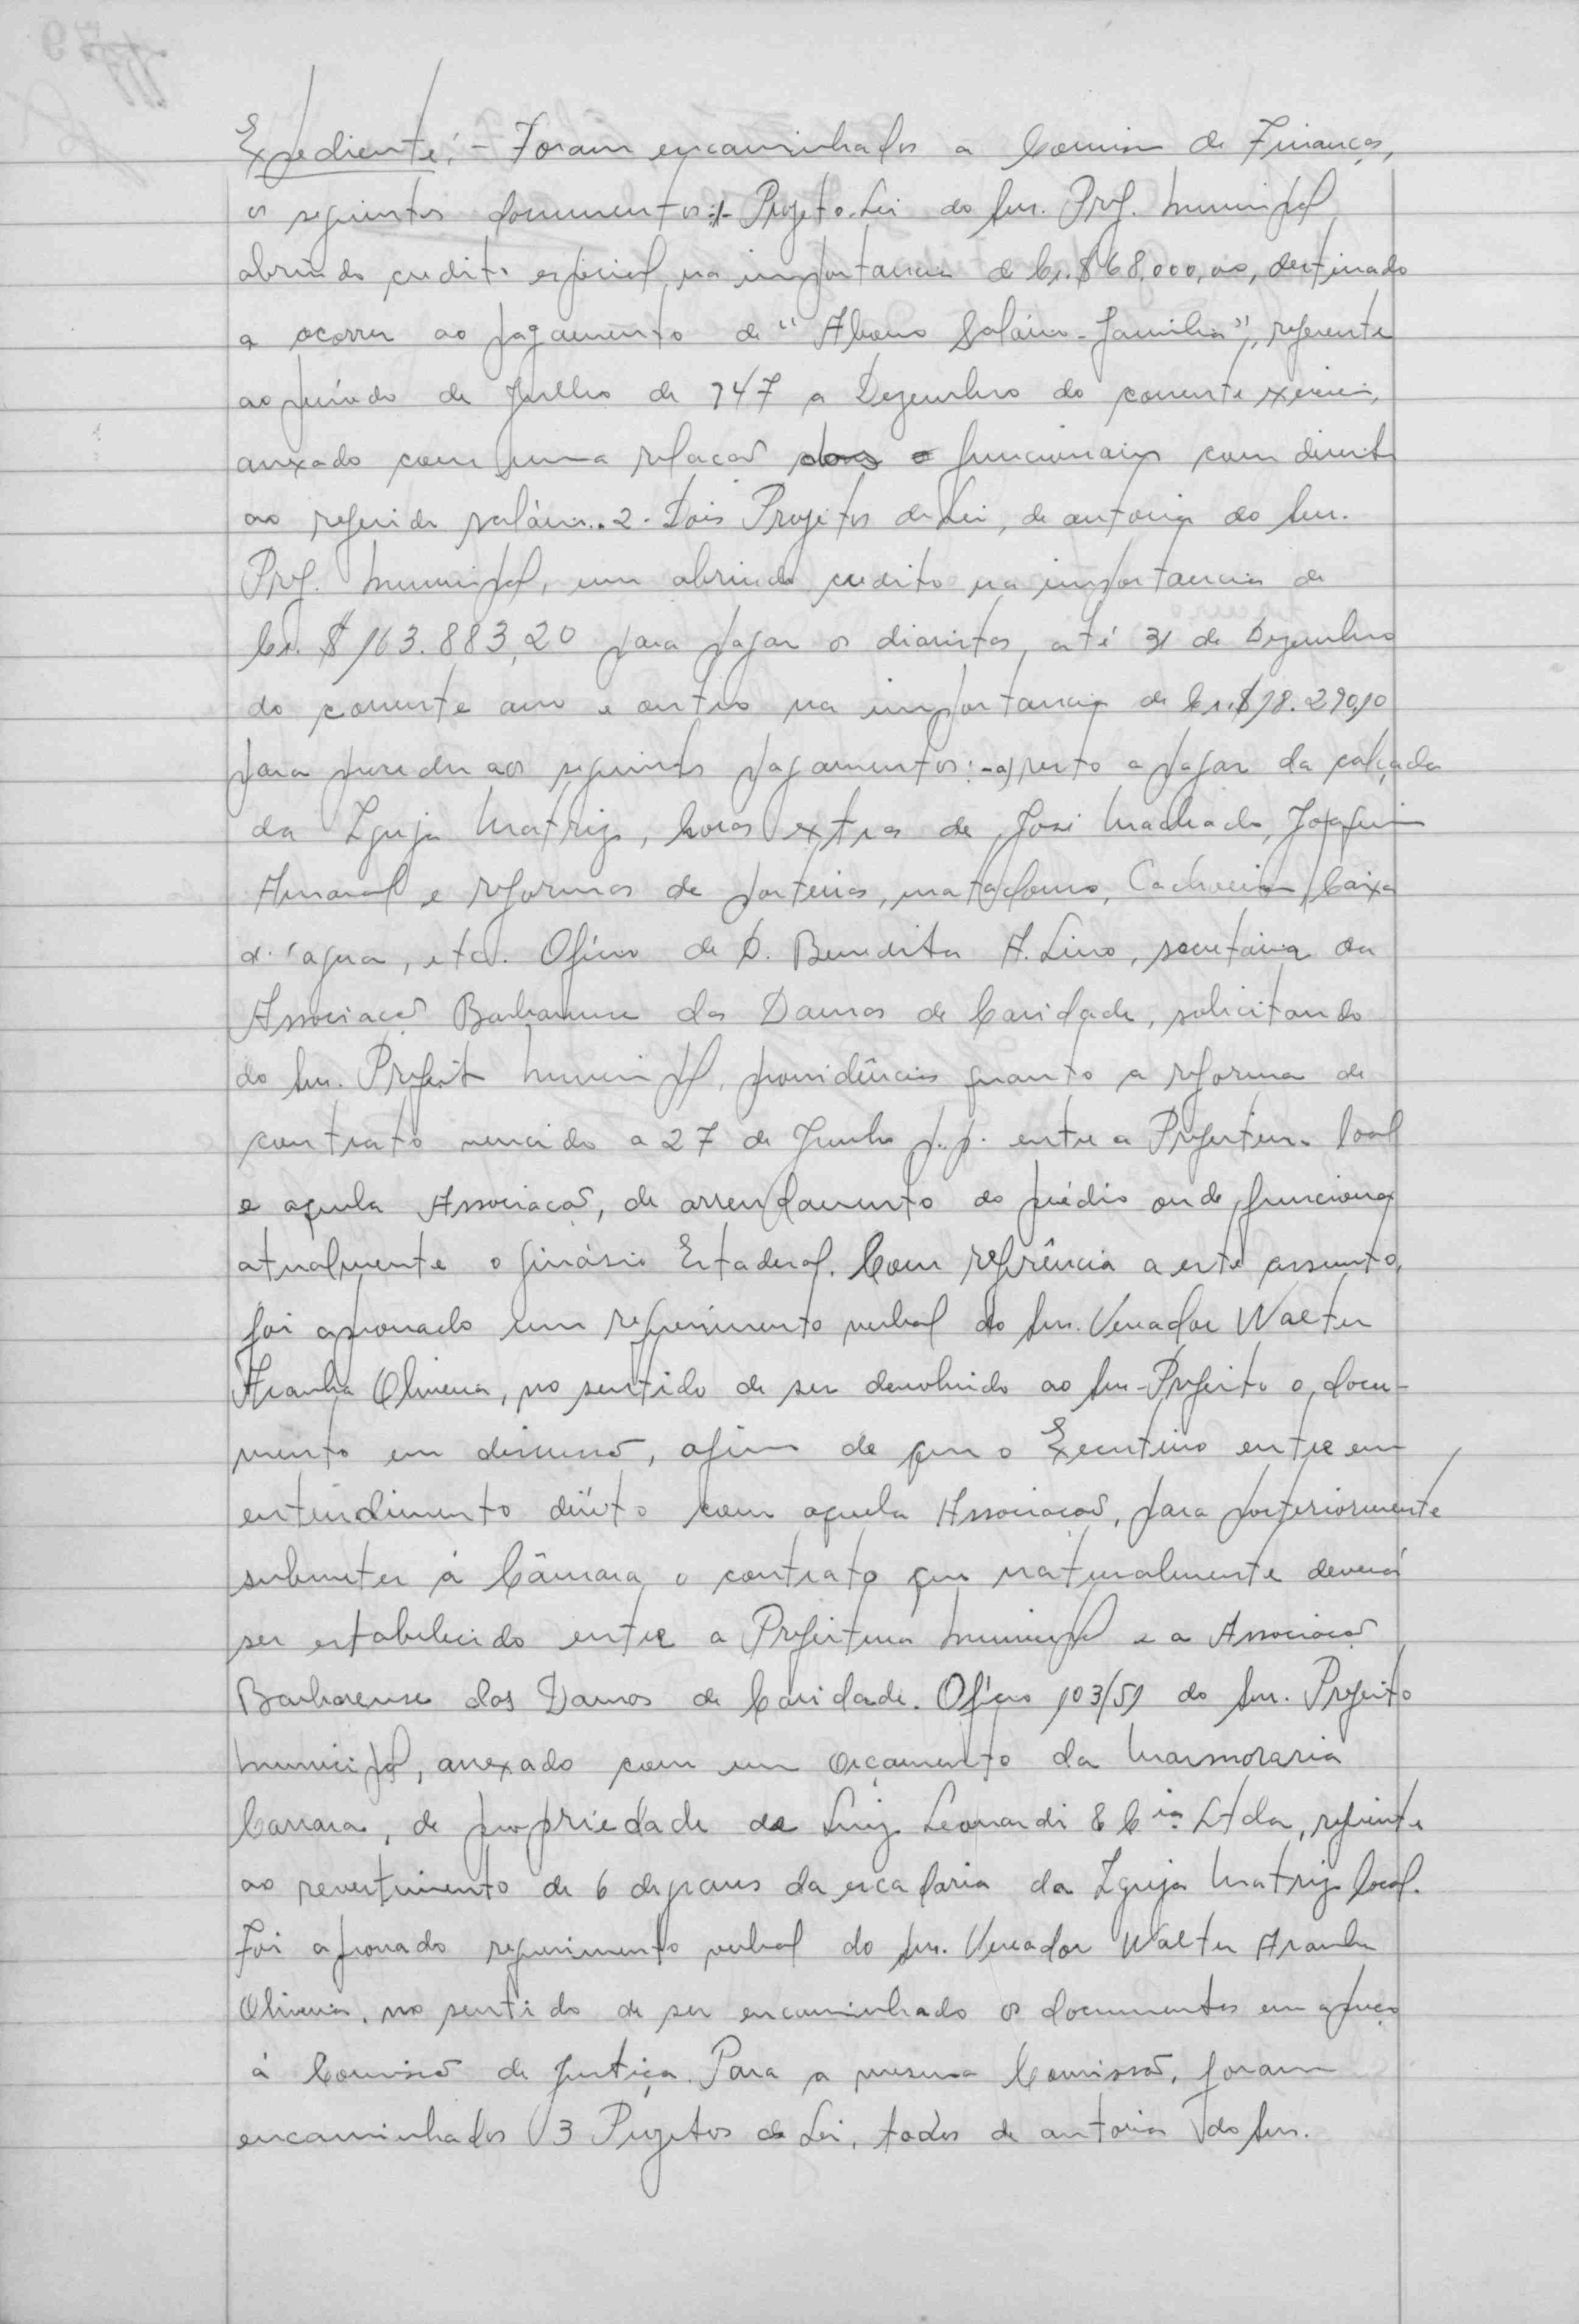 Expediente:- Foram encaminhados a Comissão de Finanças,
os seguintes documentos:- Projeto-Lei do Snr. Pref. Municipal
abrindo credito especial na importancia de Cr.$68.000,00, destinado
a ocorrer ao pagamento de "Abono Salário-Familia", referente
ao período de Julho de 947 a Dezembro do corrente exercicio,
anxado com uma relacão funcionarios com direito
ao referido salário. 2- Dois Projetos de Lei, de autoria do Snr.
Pref. Municipal, um abrindo credito na importancia de
Cr. $ 163.883,20 para pagar os diaristas, até 31 de Dezembro
do corrente ano e outro na importancia de Cr.$18.290,10
para proceder aos seguintes pagamentos:-a) resto a pagar da calçada
da Igreja Matriz, horas extras de José Machado, Joaquim
Amaral e reformas de porteiras, matadouro, Cachoeira, Caixa
d'agua, etc. Oficio de D. Benedita A. Lino, secretária da
Associacão Barbarense das Damas de Caridade, solicitando
do Snr. Prefeito Municipal, providências quanto a reforma de
contrato vencido a 27 de Junho p.p. entre a Prefeitura local
e aquela Associacão, de arrendamento do prédio onde funciona
atualmente o ginásio Estadual. Com refrência a este assunto,
foi aprovado um requerimento verbal do Snr. Vereador Walter
Aranha Oliveira, no sentido de ser devolvido ao Snr. Prefeito o docu-
mento em discussão, afim de que o Executivo entre em
entendimento diréto com aquela Associacão, para posteriormente
submeter á Câmara o contrato que naturalmente deverá
ser estabelecido entre a Prefeitura Municipal e a Associacão
Barbarense das Damas de Caridade. Oficio 103/51 do Snr. Prefeito
Municipal, anexado com um Orçamento da Marmoraria
Carrara, de propriedade de Luiz Leonardi & Cia. Ltda, referente
ao revestimento de 6 degraus da escadaria da Igreja Matriz local.
Foi aprovado requerimento verbal do Snr. Vereador Walter Aranha
Oliveira, no sentido de ser encaminhado os documentos em apreço
á Comissão de Justiça. Para a mesma Comissão, foram
encaminhados 3 Projetos de Lei, todos de autoria do Snr.